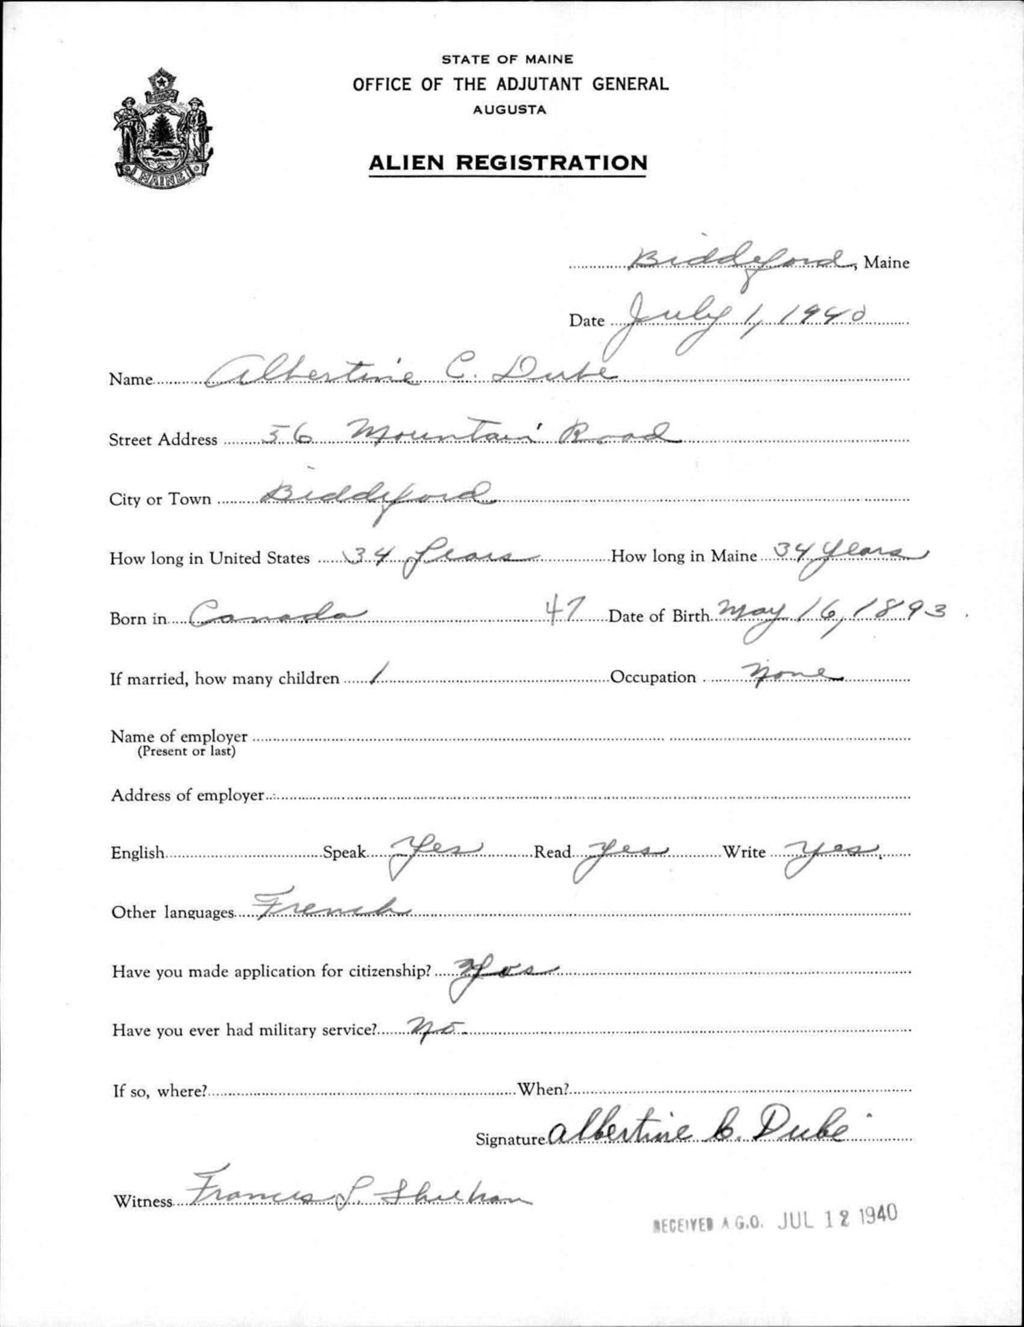 STATE OF MAINE
OFFICE OF THE ADJUTANT GENERAL
AUGUSTA
ALIEN REGISTRATION
MAINE
Biddeford, Maine
Date July 1, 1940
Name Albertine C. Dube
Street Address 56 Mountain Road
City or Town Biddeford
How long in United States 34 years How long in Maine 34 years
Born in Canada 47 Date of Birth May 16, 1893.
If married, how many children 1 Occupation None
Name of employer
(Present or last)
Address of employer
English Speak Yes Read Yes Write Yes.
Other languages French
Have you made application for citizenship? Yes
Have you ever had military service? No.
If so, where? When?
Signature Albertine C. Dubé
Witness Francis L. Sheehan
RECEIVED A.G.O. JUL 12 1940